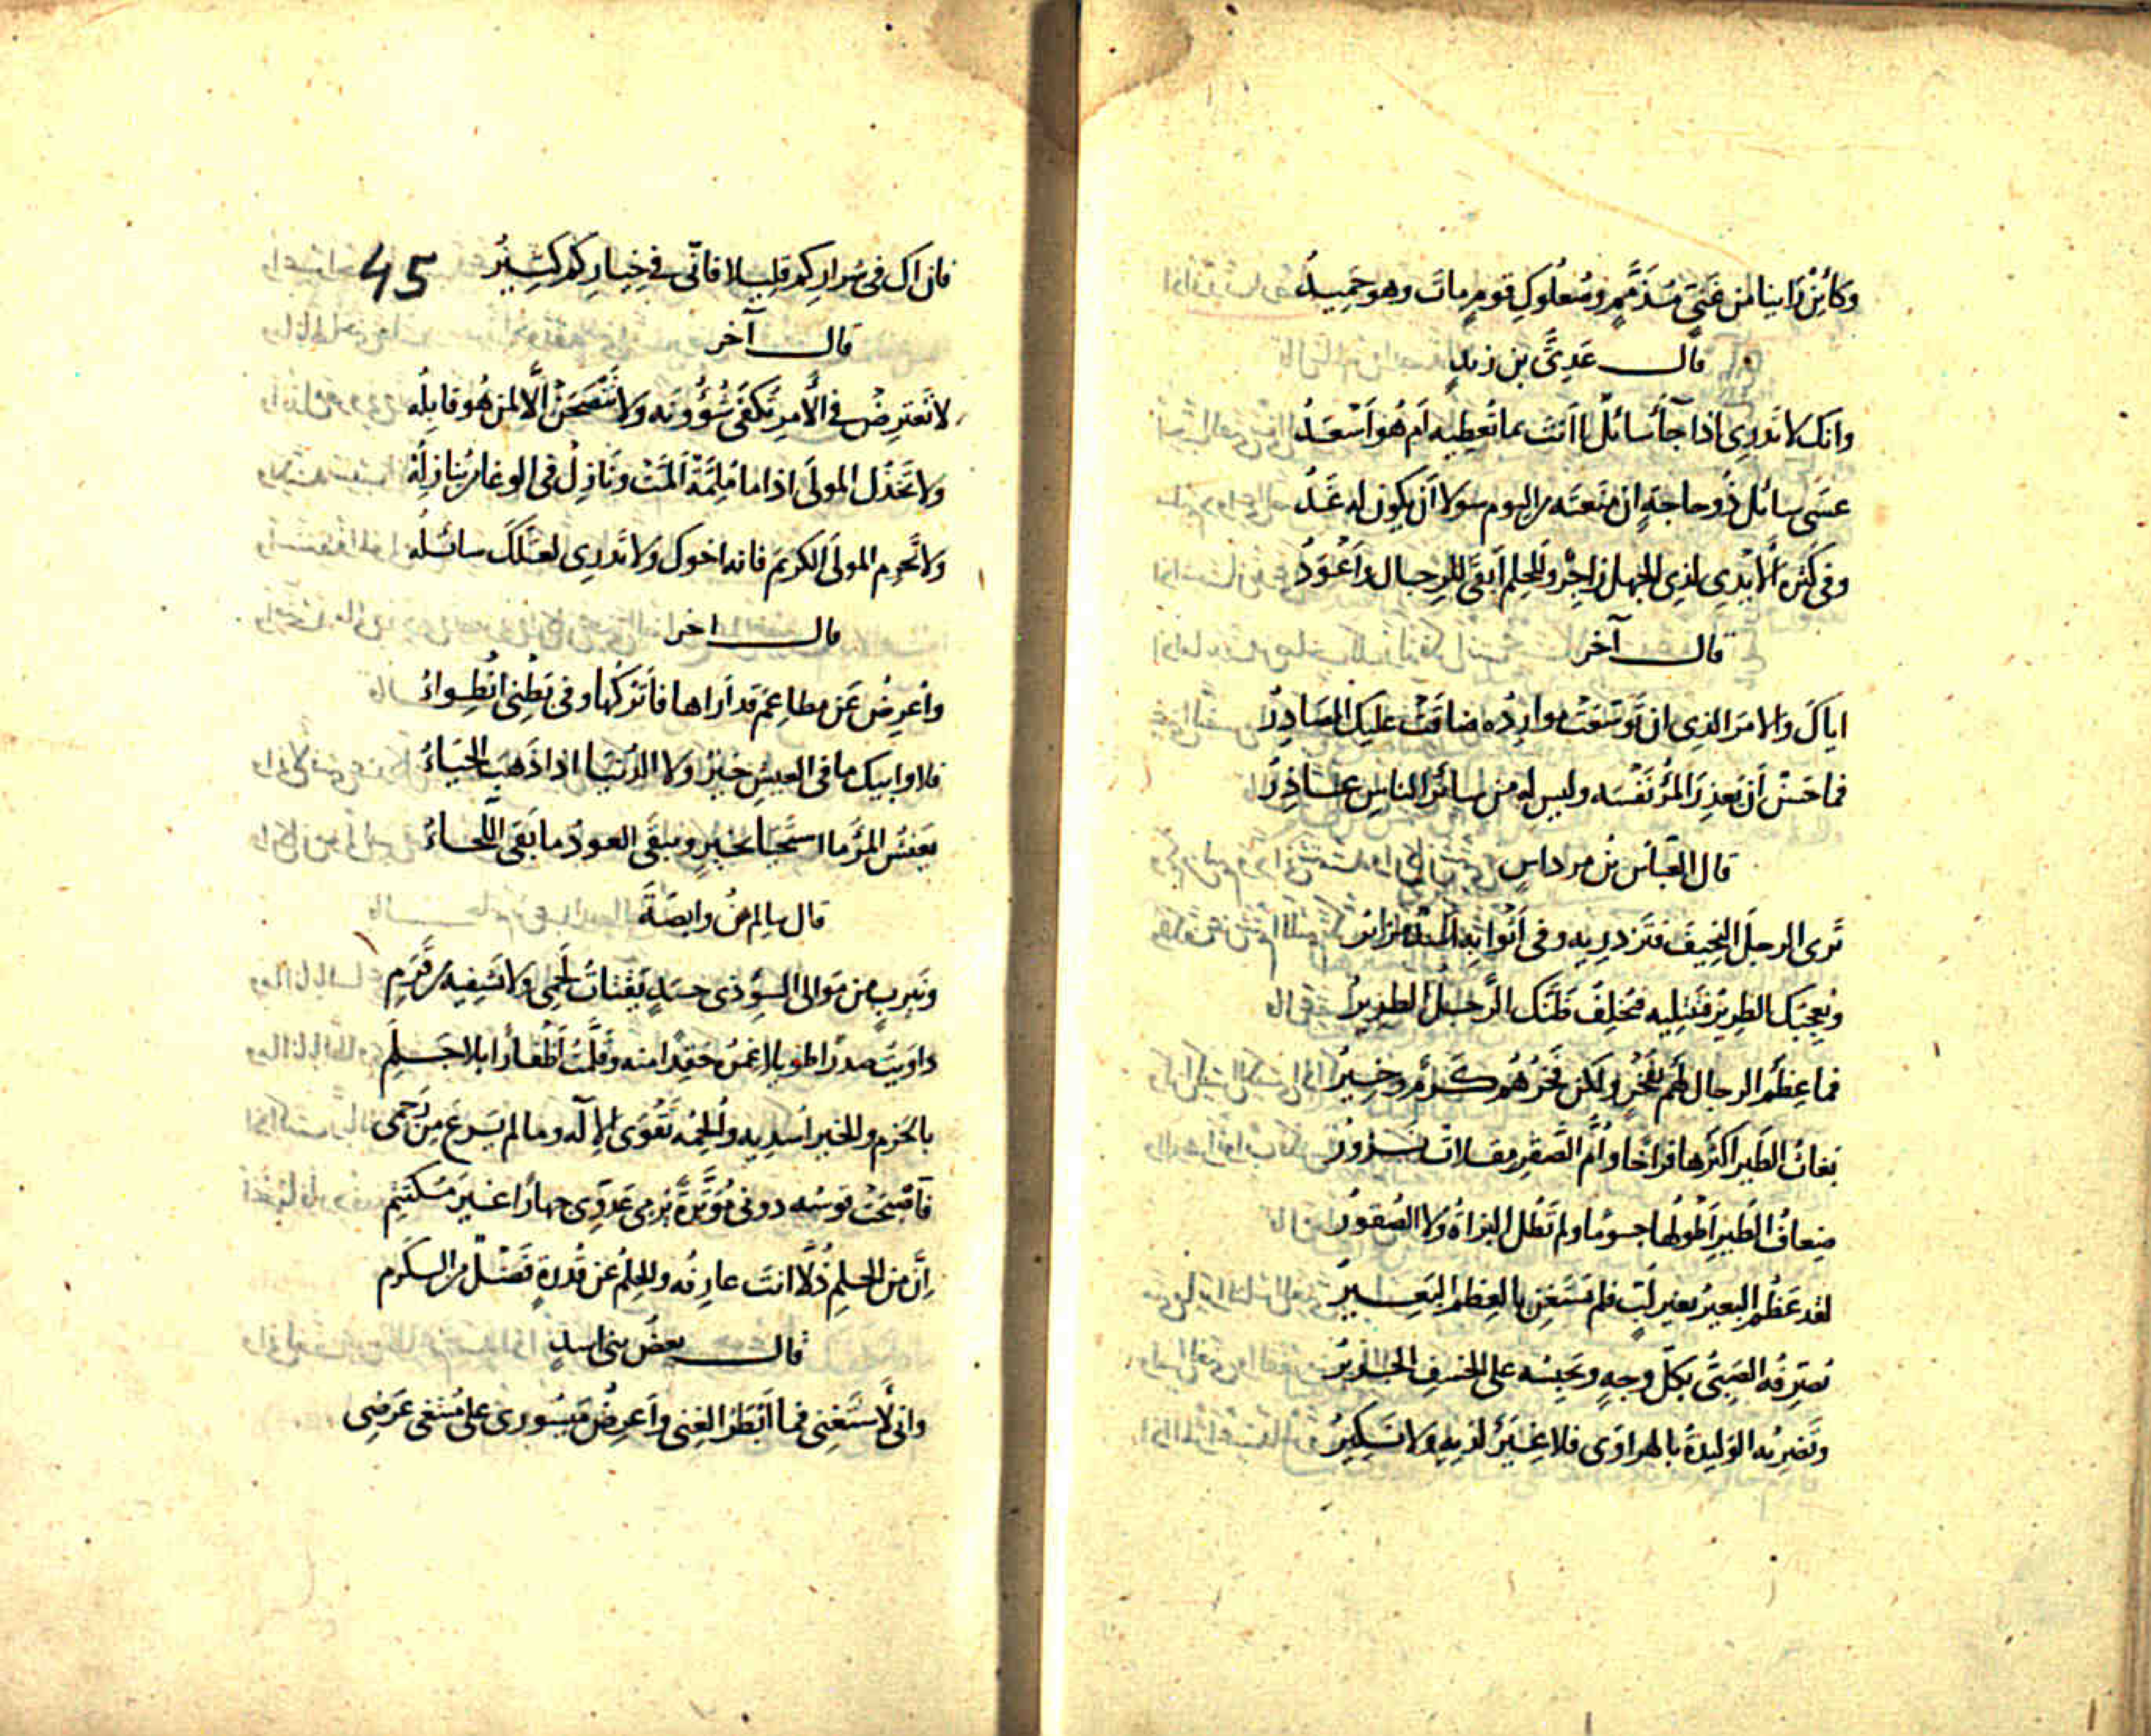 وكائن راينا من غنى مذمم وصعلوك قوم مات وهو حميد
قال عدى بن زيد
وانك لا تدرى اذا جاء سائل اانت بما تعطيه ام هو اسعد
عسى سائل ذو حاجة ان منعته من اليوم سولا ان يكون له غد
وفى كثرة الايدى لذى الجهل زاجر وللحلم ابقى للرجال واعود
قال آخر
اياك والامر الذى ان توسعت موارده ضاقت عليك المصادر
فما حسن ان يعذر المرء نفسه وليس له من سائر الناس عاذر
قال العباس بن مرداس
ترى الرجل النحيف فتزدريه وفى اثوابه اسد مزائر
ويعجبك الطرير فتبتليه فيخلف ظنك الرجل الطرير
فما عظم الرجال لهم بفخر ولكن فخرهم كرم وخير
بغاث الطير اكثرها فراخا وام الصقر مقلات نزور
ضعاف الطير اطولها جسوما ولم تطل البزاة ولا الصقور
لقد عظم البعير بغير لب فلم يستغن بالعظم البعير
يصرفه الصبى بكل وجه ويحبسه على الخسف الجرير
وتضربه الوليدة بالهراوى فلا غير لديه ولا نكير
45
فان اك فى شراركم قليلا فانى فى خياركم كثير
قال آخر
لا تعترض فى الامر تكفى شؤونه ولا تنصحن الا لمن هو قابله
ولا تخذل المولى اذا ما ملمة المت ونازل فى الوغا من ينازله
ولا تحرم المولى الكريم فانه اخوك ولا تدرى لعلك سائله
قال اخر
واعرض عن مطاعم قد اراها فاتركها وفى بطنى انطواء
فلا وابيك ما فى العيش خير ولا الدنيا اذا ذهب الحياء
يعيش المرء ما استحيا بخير ويبقى العود ما بقى اللحاء
قال سالم بن وابصة
ونيرب من موالى السوء ذى حسد يقتات لحمى ولا تشفيه من قرم
داويت صدرا طويلا غمره حقدا منه وقلمت اظفارا بلا جلم
بالحزم والخير اسديه والحمه تقوى الاله وما لم يرع من رحمى
فاصبحت قوسه دونى موترة يرمى عدوى جهارا غير مكتتم
ان من الحلم ذلا انت عارفه والحلم عن قدرة فضل من الكرم
قال بعض بنى اسد
وانى لاستغنى فما ابطر الغنى واعرض ميسورى على مبتغى عرضى